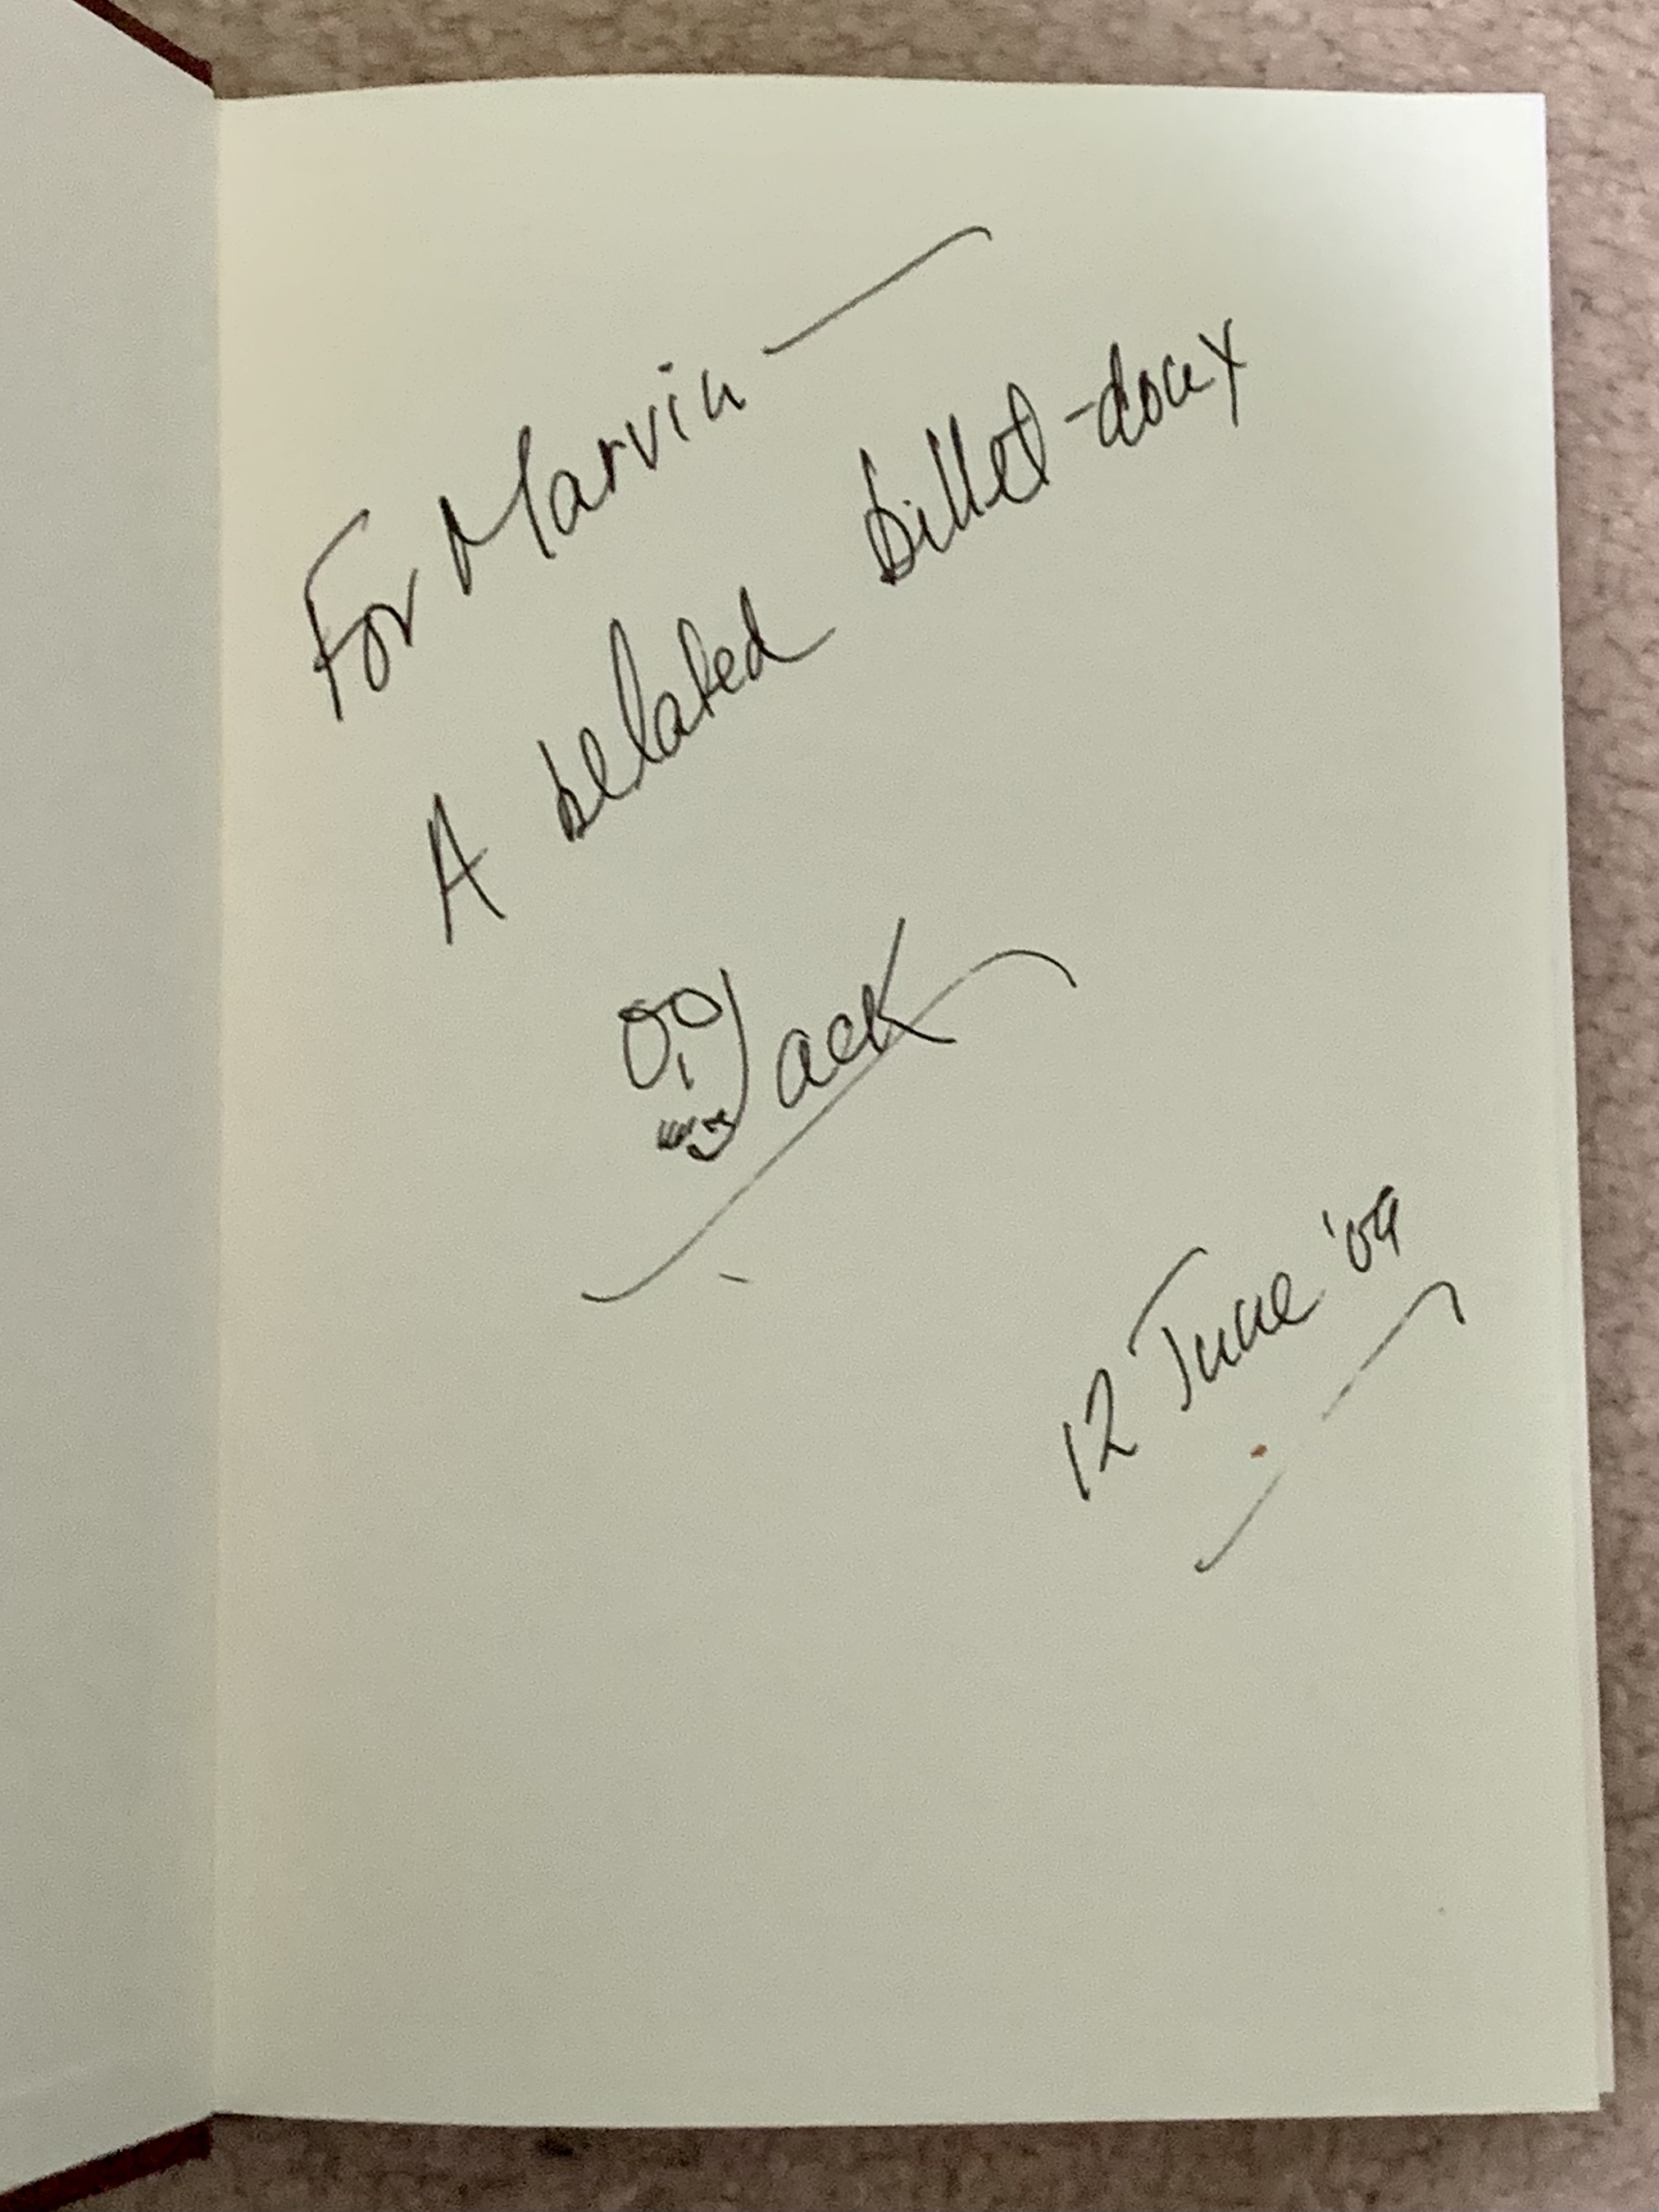 For Marvin —
A belated billet-doux
Jack
12 June '09